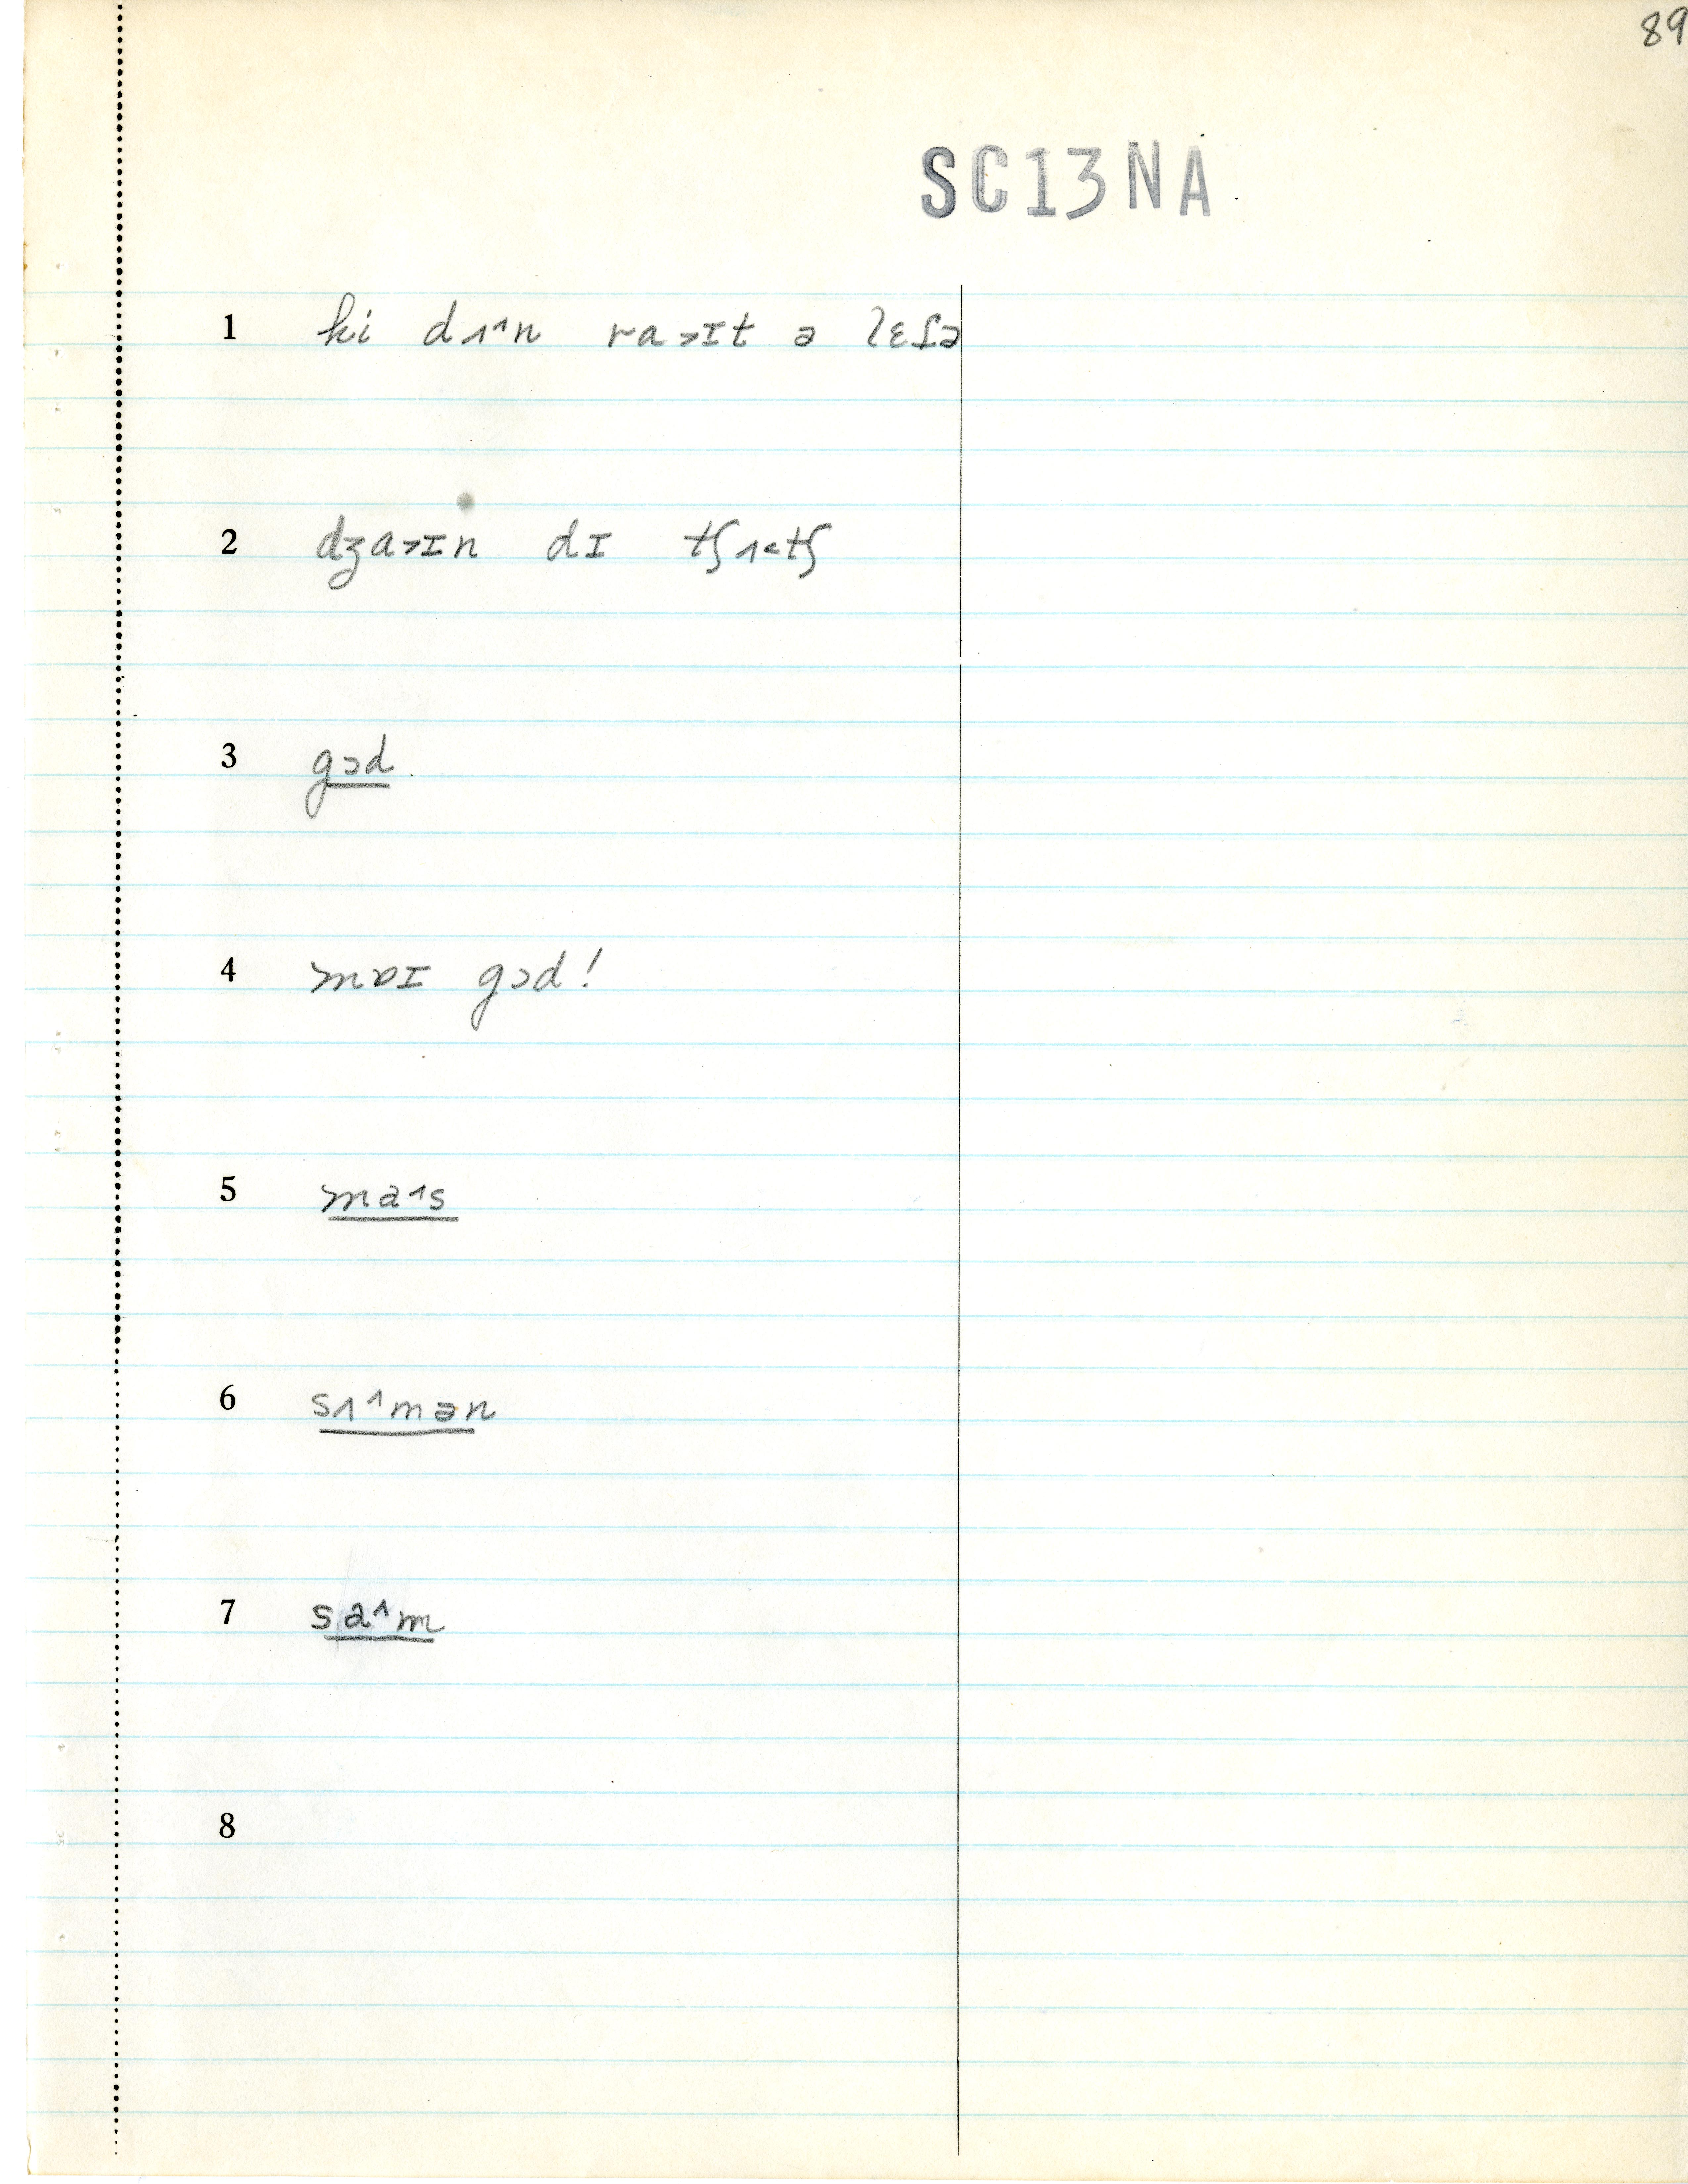 89
SC13NA
1 hi dʌ^n ra>ɪt ə lɛʃə
2 dʒa>ɪn dɪ tʃʌ<tʃ
3 gɔd
4 mɒɪ gɔd!
5 ma^s
6 sʌ^mən
7 sa^m
8